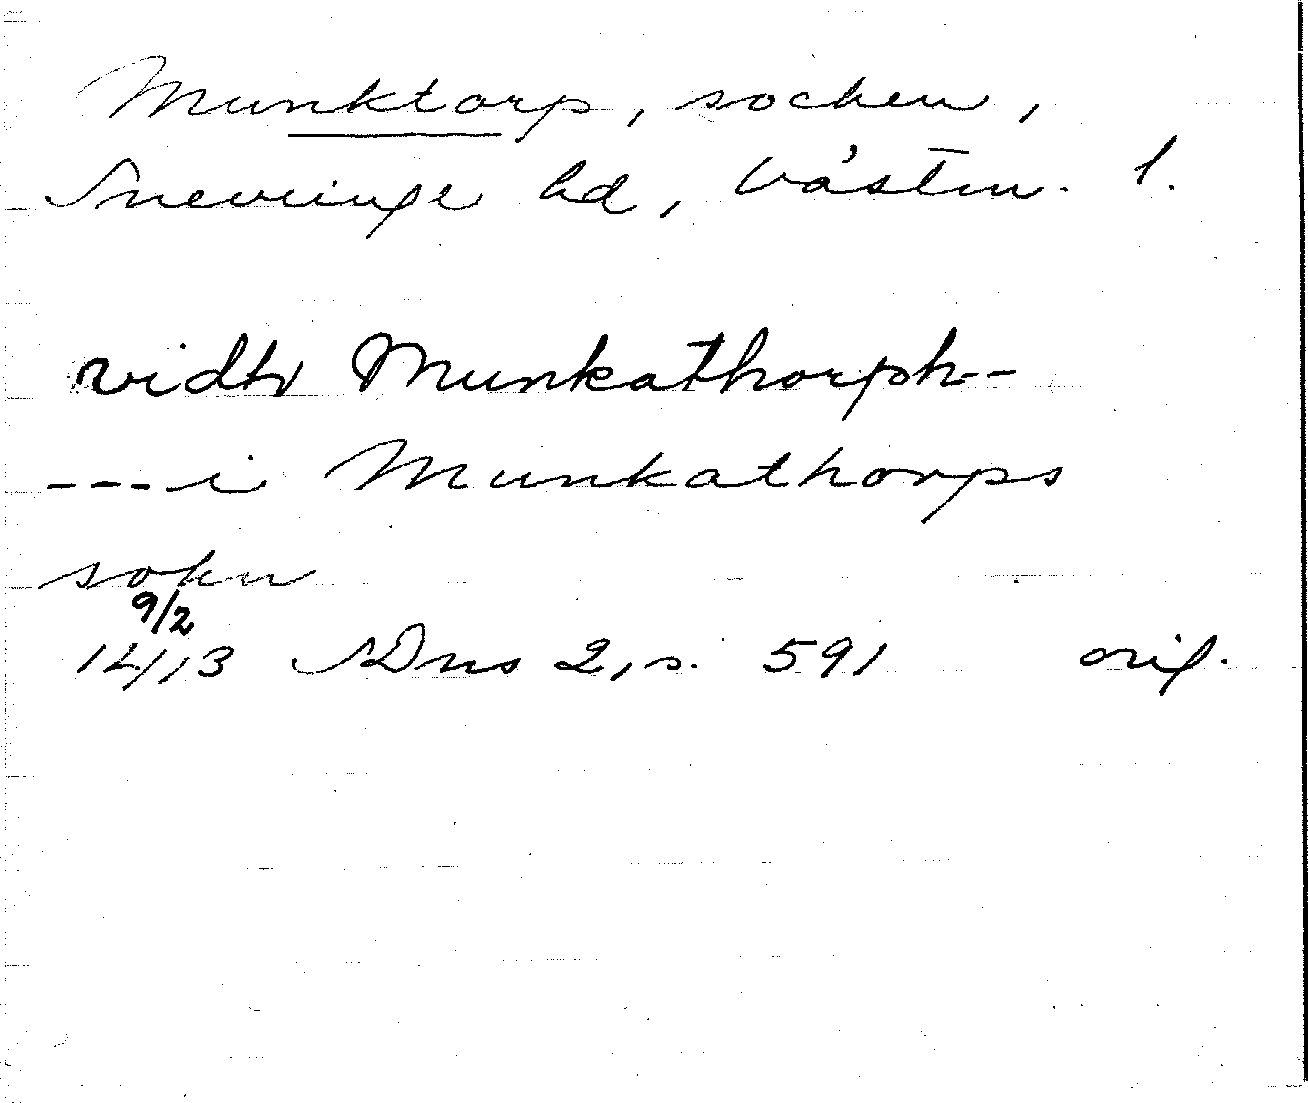 Munktorp, socken,
Snevringe hd, Västm. l.
vidh Munkathorph--
---i Munkathorps
sokn
9/2
1413 SDns 2, s. 591 orig.